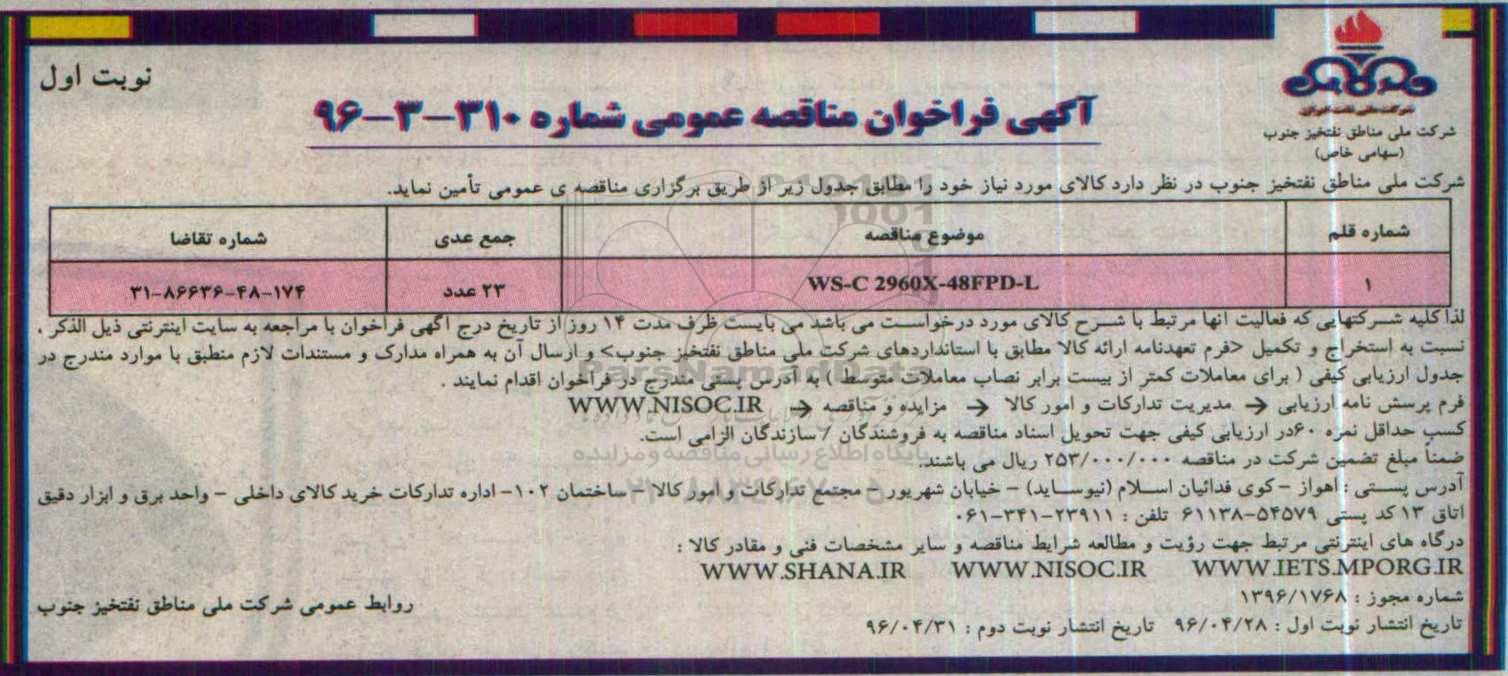 نوبت اول
شرکت ملی نفت ایران
شرکت ملی مناطق نفتخیز جنوب
(سهامی خاص)
آگهی فراخوان مناقصه عمومی شماره ۳۱۰-۳-۹۶
شرکت ملی مناطق نفتخیز جنوب در نظر دارد کالای مورد نیاز خود را مطابق جدول زیر از طریق برگزاری مناقصه ی عمومی تأمین نماید.
شماره قلم موضوع مناقصه جمع عددی شماره تقاضا
۱ WS-C 2960X-48FPD-L ۲۳ عدد ۳۱-۸۶۶۳۶-۴۸-۱۷۴
لذا کلیه شرکتهایی که فعالیت آنها مرتبط با شرح کالای مورد درخواست می باشد می بایست ظرف مدت ۱۴ روز از تاریخ درج آگهی فراخوان با مراجعه به سایت اینترنتی ذیل الذکر ،
نسبت به استخراج و تکمیل <فرم تعهدنامه ارائه کالا مطابق با استانداردهای شرکت ملی مناطق نفتخیز جنوب> و ارسال آن به همراه مدارک و مستندات لازم منطبق با موارد مندرج در
جدول ارزیابی کیفی ( برای معاملات کمتر از بیست برابر نصاب معاملات متوسط ) به آدرس پستی مندرج در فراخوان اقدام نمایند .
فرم پرسش نامه ارزیابی → مدیریت تدارکات و امور کالا → مزایده و مناقصه → WWW.NISOC.IR
کسب حداقل نمره ۶۰در ارزیابی کیفی جهت تحویل اسناد مناقصه به فروشندگان / سازندگان الزامی است.
ضمناً مبلغ تضمین شرکت در مناقصه ۲۵۳/۰۰۰/۰۰۰ ریال می باشند.
آدرس پستی : اهواز - کوی فدائیان اسلام (نیوساید) - خیابان شهریور - مجتمع تدارکات و امور کالا - ساختمان ۱۰۲- اداره تدارکات خرید کالای داخلی - واحد برق و ابزار دقیق
اتاق ۱۳ کد پستی ۵۴۵۷۹-۶۱۱۳۸ تلفن : ۲۳۹۱۱-۳۴۱-۰۶۱
درگاه های اینترنتی مرتبط جهت رؤیت و مطالعه شرایط مناقصه و سایر مشخصات فنی و مقادر کالا :
WWW.SHANA.IR WWW.NISOC.IR WWW.IETS.MPORG.IR
شماره مجوز : ۱۳۹۶/۱۷۶۸
تاریخ انتشار نوبت اول : ۹۶/۰۴/۲۸ تاریخ انتشار نوبت دوم : ۹۶/۰۴/۳۱
روابط عمومی شرکت ملی مناطق نفتخیز جنوب
ParsNamadData
پایگاه اطلاع رسانی مناقصه و مزایده